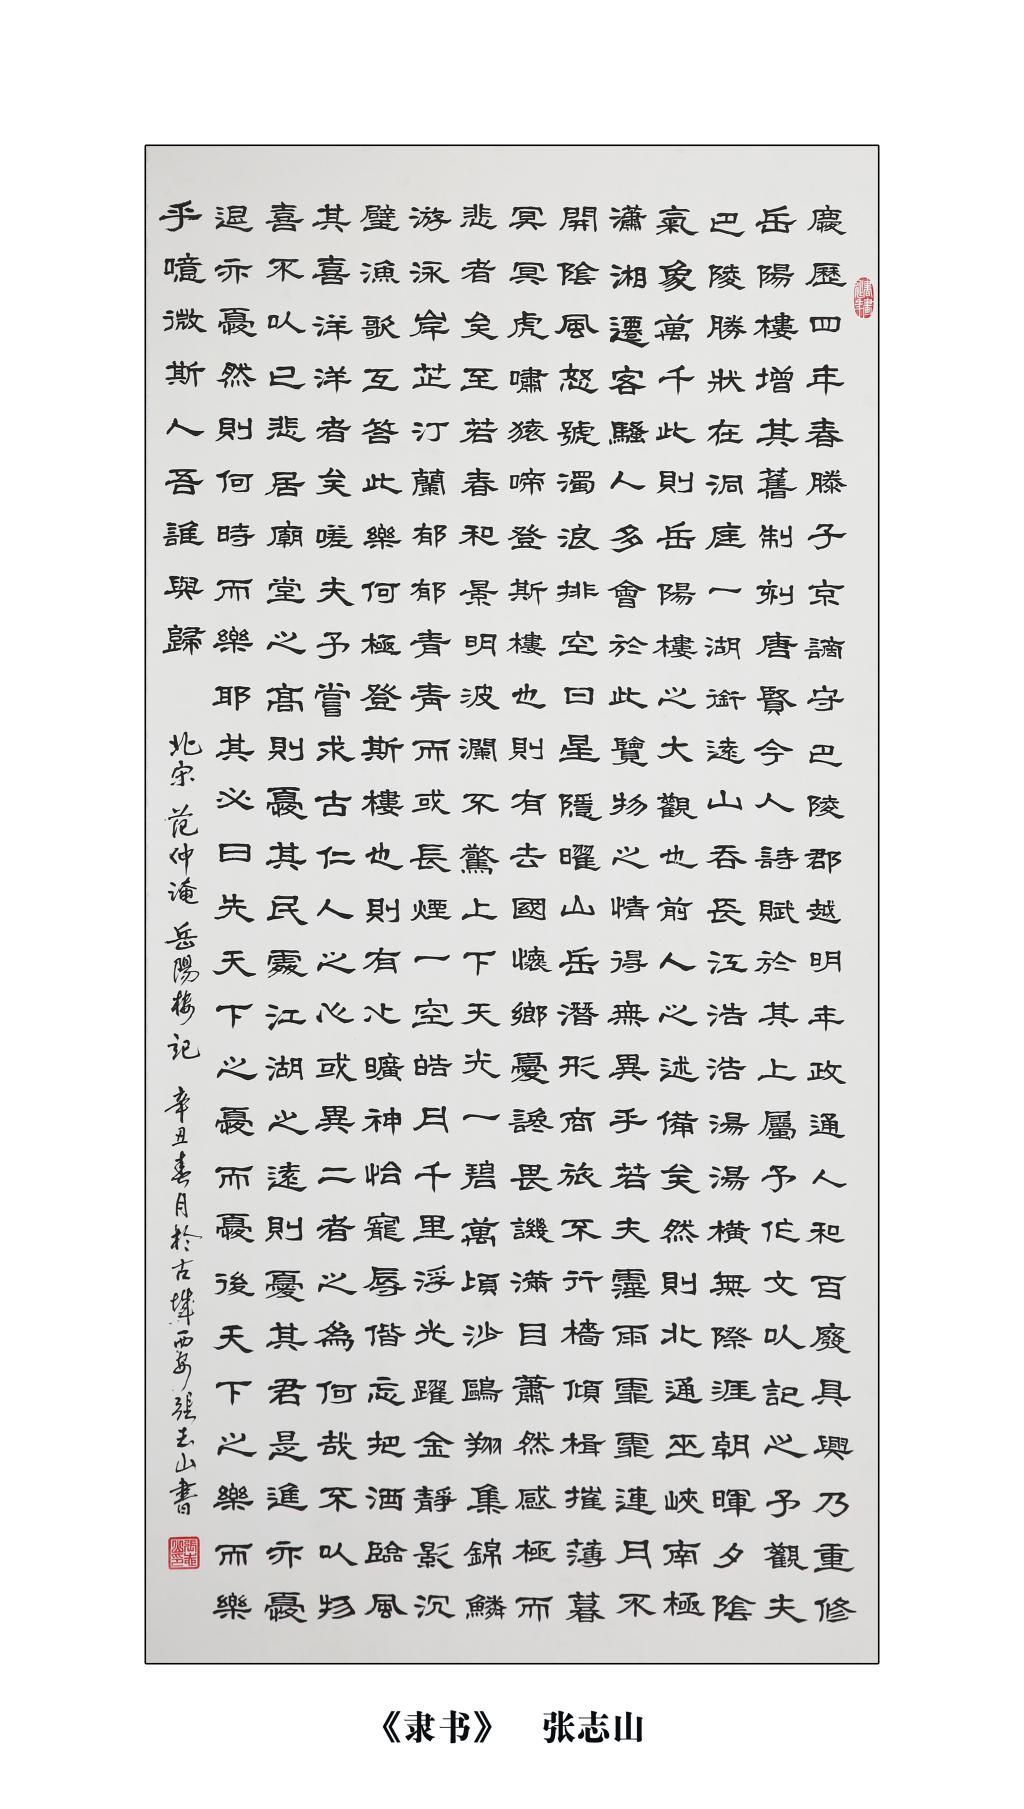 慶歷四年春滕子京謫守巴陵郡越明年政通人和百廢具興乃重修
岳陽樓增其舊制刻唐賢今人詩賦於其上屬予作文以記之予觀夫
巴陵勝狀在洞庭一湖銜遠山吞長江浩浩湯湯橫無際涯朝暉夕陰
氣象萬千此則岳陽樓之大觀也前人之述備矣然則北通巫峽南極
瀟湘遷客騷人多會於此覽物之情得無異乎若夫霪雨霏霏連月不
開陰風怒號濁浪排空日星隱曜山岳潛形商旅不行檣傾楫摧薄暮
冥冥虎嘯猿啼登斯樓也則有去國懷鄉憂讒畏譏滿目蕭然感極而
悲者矣至若春和景明波瀾不驚上下天光一碧萬頃沙鷗翔集錦鱗
游泳岸芷汀蘭郁郁青青而或長煙一空皓月千里浮光躍金靜影沉
璧漁歌互答此樂何極登斯樓也則有心曠神怡寵辱偕忘把酒臨風
其喜洋洋者矣嗟夫予嘗求古仁人之心或異二者之為何哉不以物
喜不以己悲居廟堂之高則憂其民處江湖之遠則憂其君是進亦憂
退亦憂然則何時而樂耶其必曰先天下之憂而憂後天下之樂而樂
乎噫微斯人吾誰與歸 北宋 范仲淹 岳陽樓記 辛丑春月於古城西安張志山書
《隶书》 张志山